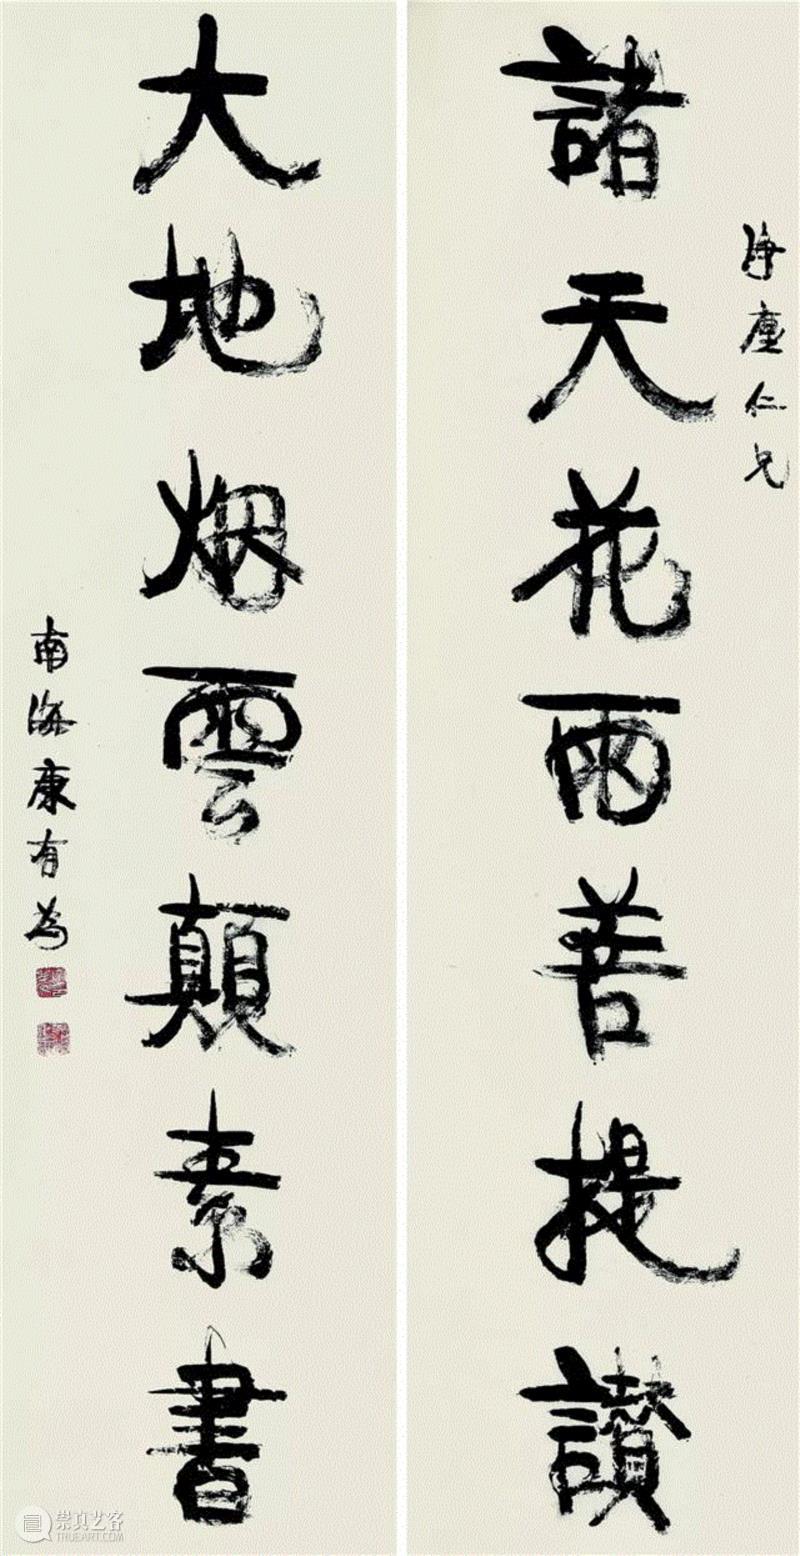 淨塵仁兄
諸天花雨菩提讚
大地烟雲顛素書
南海康有為
崇真艺客
TRUEART.COM